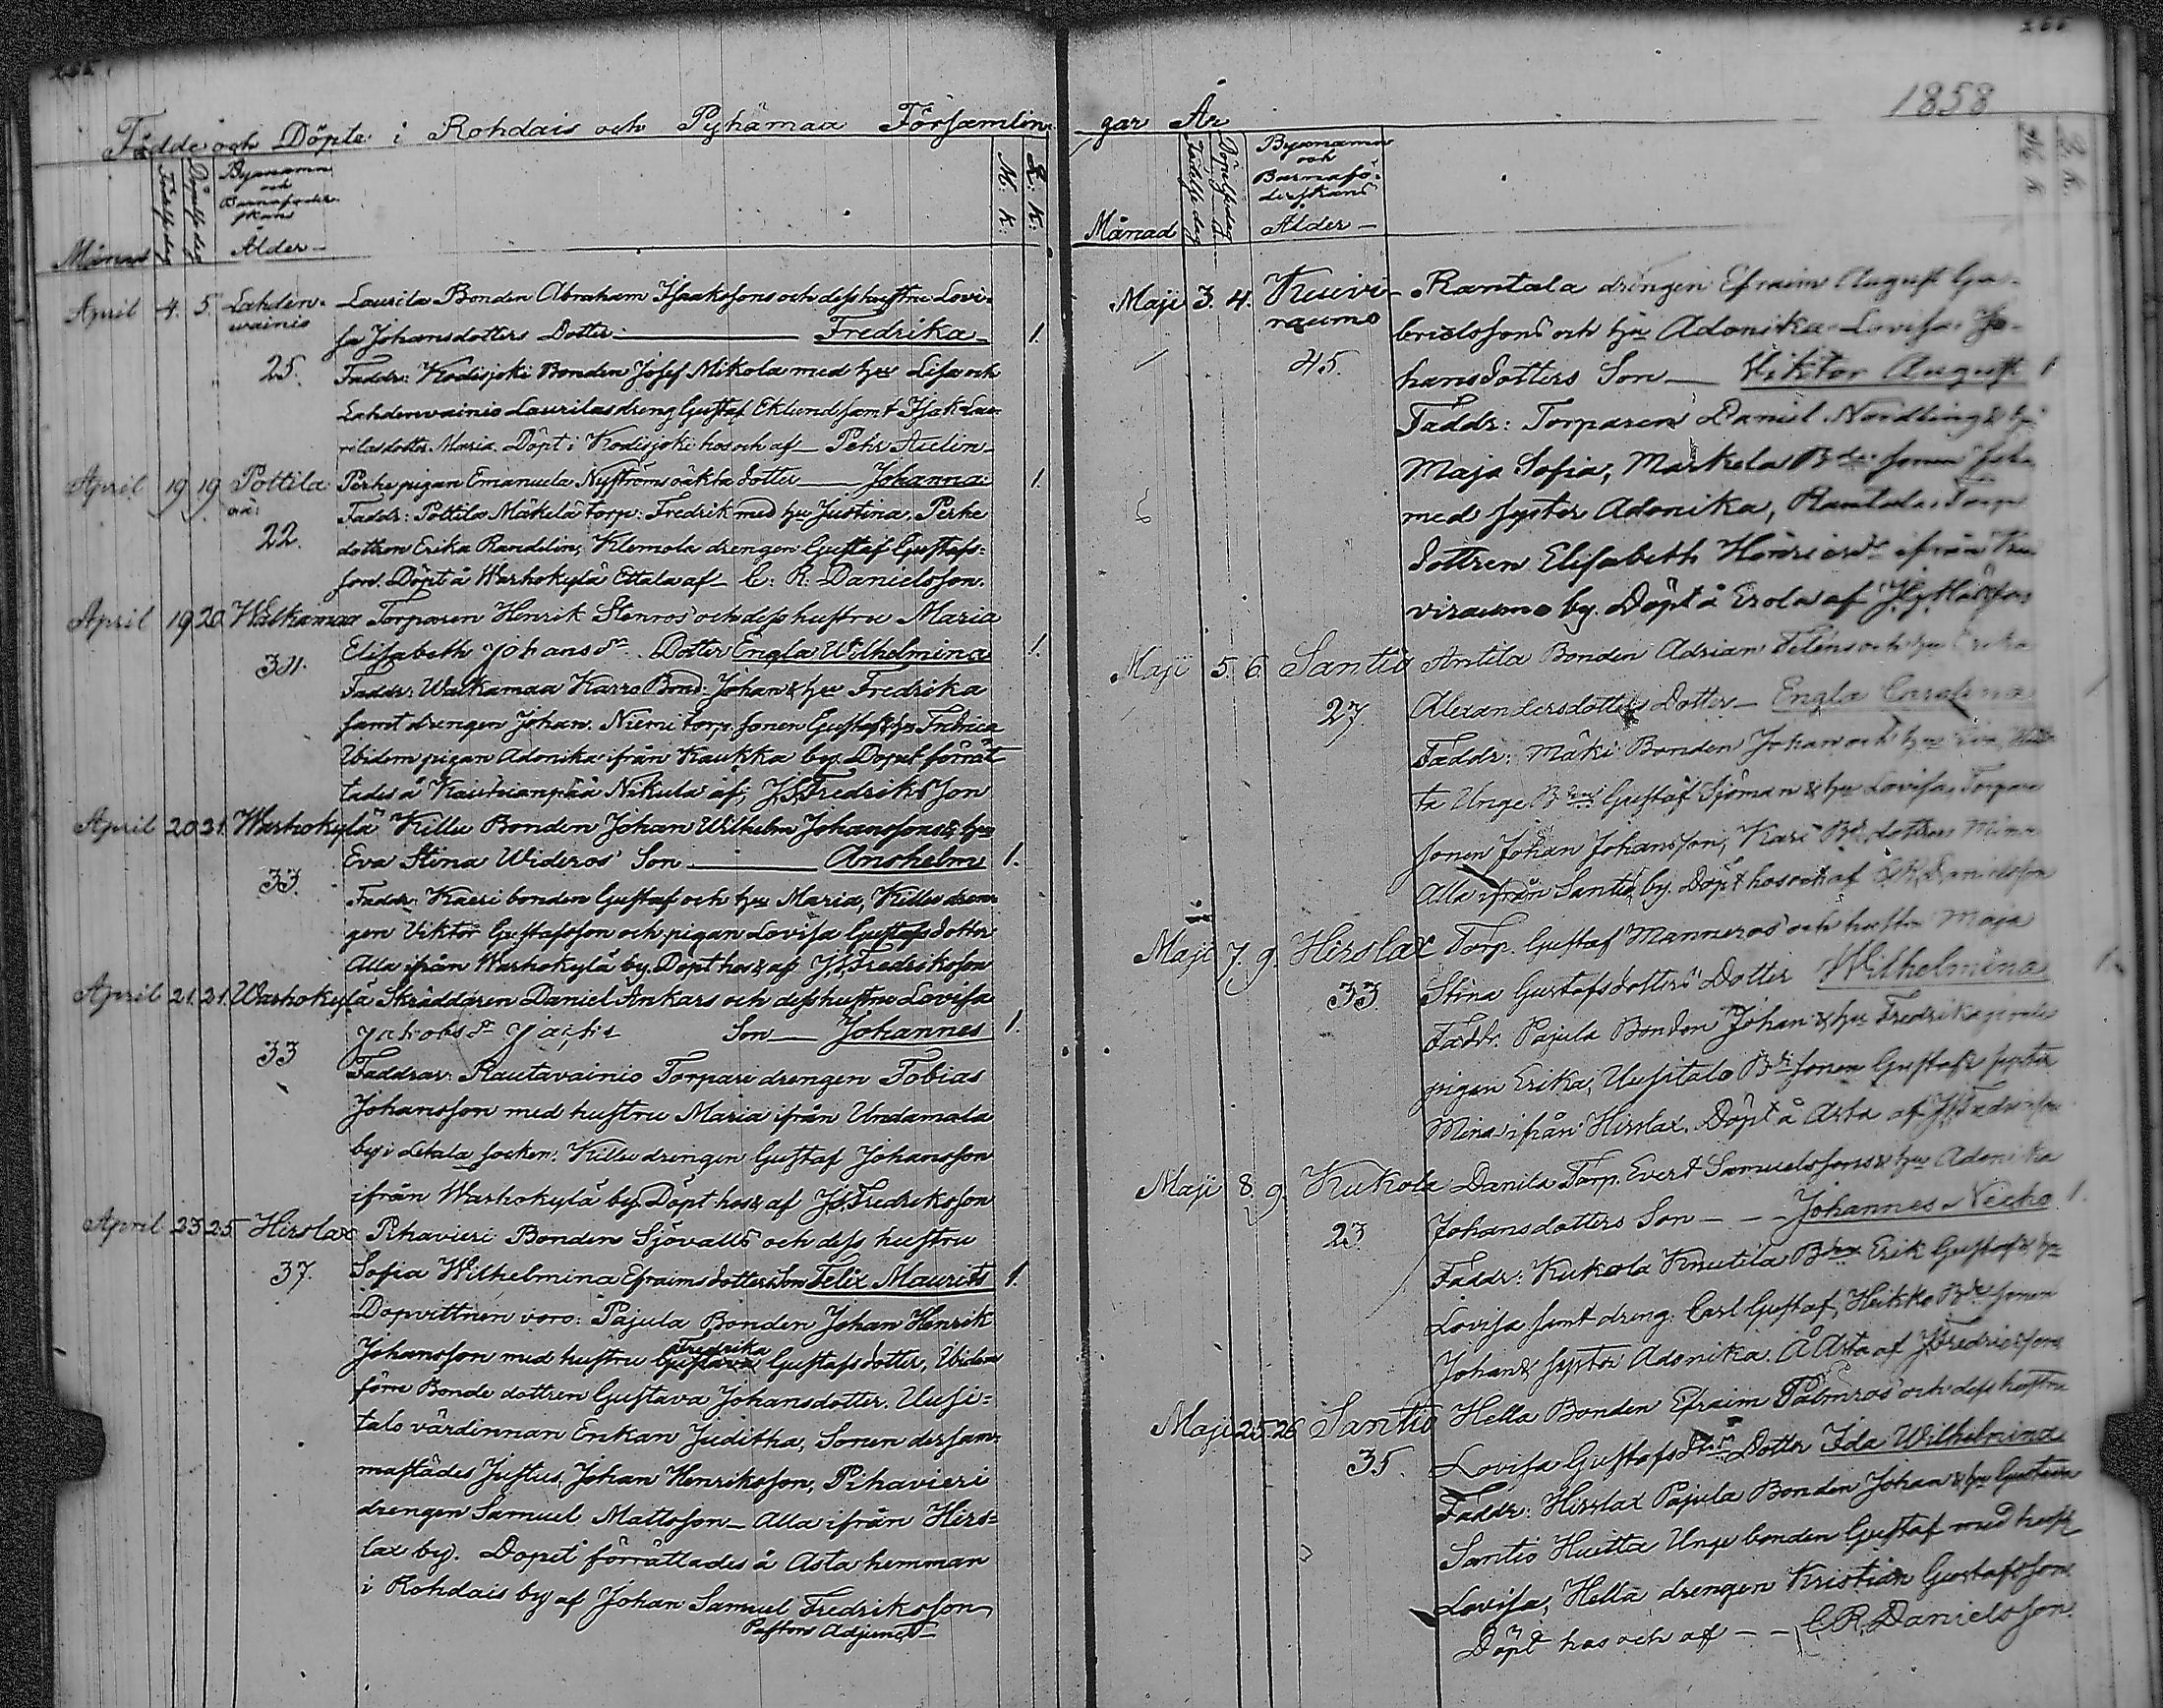 Födde och Döpte i Rohdais och Pyhämaa Församlin-
Månad
Födelse dag
Döpelse dag
Byanamn
och
Barnaföder-
skans
Ålder —
M. K.
Q. K.
April 4. 5. Lahden- Laurila Bonden Abraham Isaakssons och dess hustru Lovi-
wainio sa Johansdotters Dotter — Fredrika — 1.
25. Faddr: Kodisjoki Bonden Josef Mikola med hju Lisa och
Lahdenwainio Laurilas dreng Gustaf Eklund samt Isak Lau-
rilas dotter Maria. Döpt i Kodisjoki hos och af — Pehr Aulin —
April 19 19 Pottila Perhe pigan Emanuela Nyströms oäkta dotter — Johanna. 1.
22. Faddr: Pottila Mäkelä torp: Fredrik med hju Justina. Perhe
dottren Erika Randelin, Klemola drengen Gustaf Gustafs-
son. Döpt å Warhokylä Ettala af — C. R. Danielsson.
April 19 20 Walkamaa Torparen Henrik Stenros och dess hustru Maria
31. Elisabeth Johans dr Dotter Engla Wilhelmina 1.
Faddr: Walkamaa Karro Bond: Johan & hju Fredrika
samt drengen Johan. Niemi torp. sonen Gustaf & hju Fredrica
Ibidem pigan Adonika ifrån Kaukka by. Dopet förrät-
tades å Nikula af J. S. Fredriksson
April 20 21. Warhokylä Killu Bonden Johan Wilhelm Johanssons & hju
33. Eva Stina Wideros Son — Anshelm 1.
Faddr: Kaeri bonden Gustaf och hju Maria, Killu dren-
gen Viktor Gustafsson och pigan Lovisa Gustafsdotter
Alla ifrån Warhokylä by. Döpt hos & af J. S. Fredriksson
April 21. 21. Warhokylä Skräddaren Daniel Ankars och dess hustru Lovisa
33 Jakobs dr Son — Johannes 1.
Faddrar: Rautavainio Torpare drengen Tobias
Johansson med hustru Maria ifrån Undamala
by i Letala socken. Killu drengen Gustaf Johansson
ifrån Warhokylä by. Döpt hos & af J. S. Fredriksson
April 23 25. Hirslax Pihavieri Bonden Sjövalls och dess hustru
37. Sofia Wilhelmina Efraimsdotters Son Felix Maurits 1.
Dopvittnen voro: Pajula Bonden Johan Henrik
Fredrika
Johansson med hustru Gustava Gustafsdotter, Ibidem
förre Bonde dottren Gustava Johansdotter. Uusi-
talo värdinnan Enkan Juditha, Sonen dersam-
mastädes Justus, Johan Henriksson, Pihavieri
drengen Samuel Mattsson — Alla ifrån Hirs-
lax by. Dopet förrättades å Asta hemman
i Rohdais by af Johan Samuel Fredriksson
Pastors Adjunct —
gar År 1858
Månad
Födelse dag
Döpelsedag
Byanamn
och
Barnafö-
derskans
Ålder —
M. K.
Q. K.
Maji 3. 4. Kuivi- Rantala drengen Efraim August Ga-
raumo brielssons och hju Adonika Lovisa Jo-
45. hansdotters Son — Viktor August 1
Faddr: Torparen Daniel Nordling & hju
Maja Sofia, Markela Bde sonen Joh.
med syster Adonika, Rantala Torp.
dottren Elisabeth ifrån Kui-
viraumo by. Döpt å Erola af
Maji 5. 6. Santio Antila Bonden Adrian Feléns och hju Erika
27. Alexandersdotters Dotter — Engla Carolina
Faddr: Mäki Bonden Johan och hju Eva, Huit-
ta Unge Bden Gustaf Sjöman & hju Lovisa, Torpare
sonen Johan Johansson, Kari Bde dottren Mina
Alla ifrån Santio by. Döpt hos och af C. R. Danielsson
Maji 7. 9. Hirslax Torp. Gustaf Manneros och hustru Maja
33. Stina Gustafsdotters Dotter Wilhelmina 1.
Faddr. Pajula Bonden Johan & hju Fredrika
pigan Erika, Uusitalo Bde sonen Gustaf & syster
Mina ifrån Hirslax. Döpt å Asta af J. S. Fredriksson
Maji 8. 9. Kukola Danila Torp. Evert Samuelssons & hju Adonika
23. Johansdotters Son — — Johannes Necho 1.
Faddr: Kukola Knutila Bden Erik Gustaf & hju
Lovisa samt dreng. Carl Gustaf, Heikko Bde sonen
Johan & syster Adonika. Å Asta af J. S. Fredriksson
Maji 25 26 Santio Hella Bonden Efraim Palmros och dess hustru
35. Lovisa Gustafs Dotter Ida Wilhelmina
Faddr: Hirslax Pajula Bonden Johan & hju Gustava
Santio Huitta Unge bonden Gustaf med hustr
Lovisa, Hella drengen Kristian Gustafsson.
Döpt hos och af — — C. R. Danielsson.